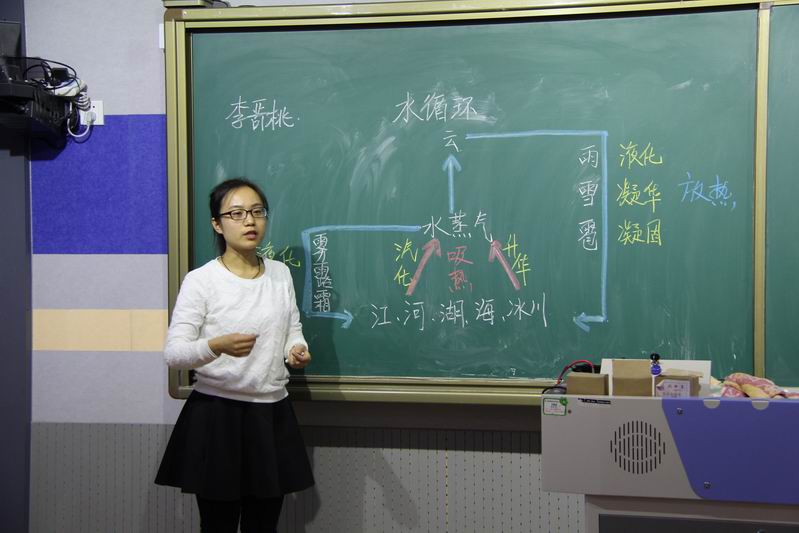 李晋桃
水循环
云
雨
雪
雹
液化
凝华
凝固
放热
水蒸气
液化
雾露霜
汽化
吸热
升华
江、河、湖、海、冰川